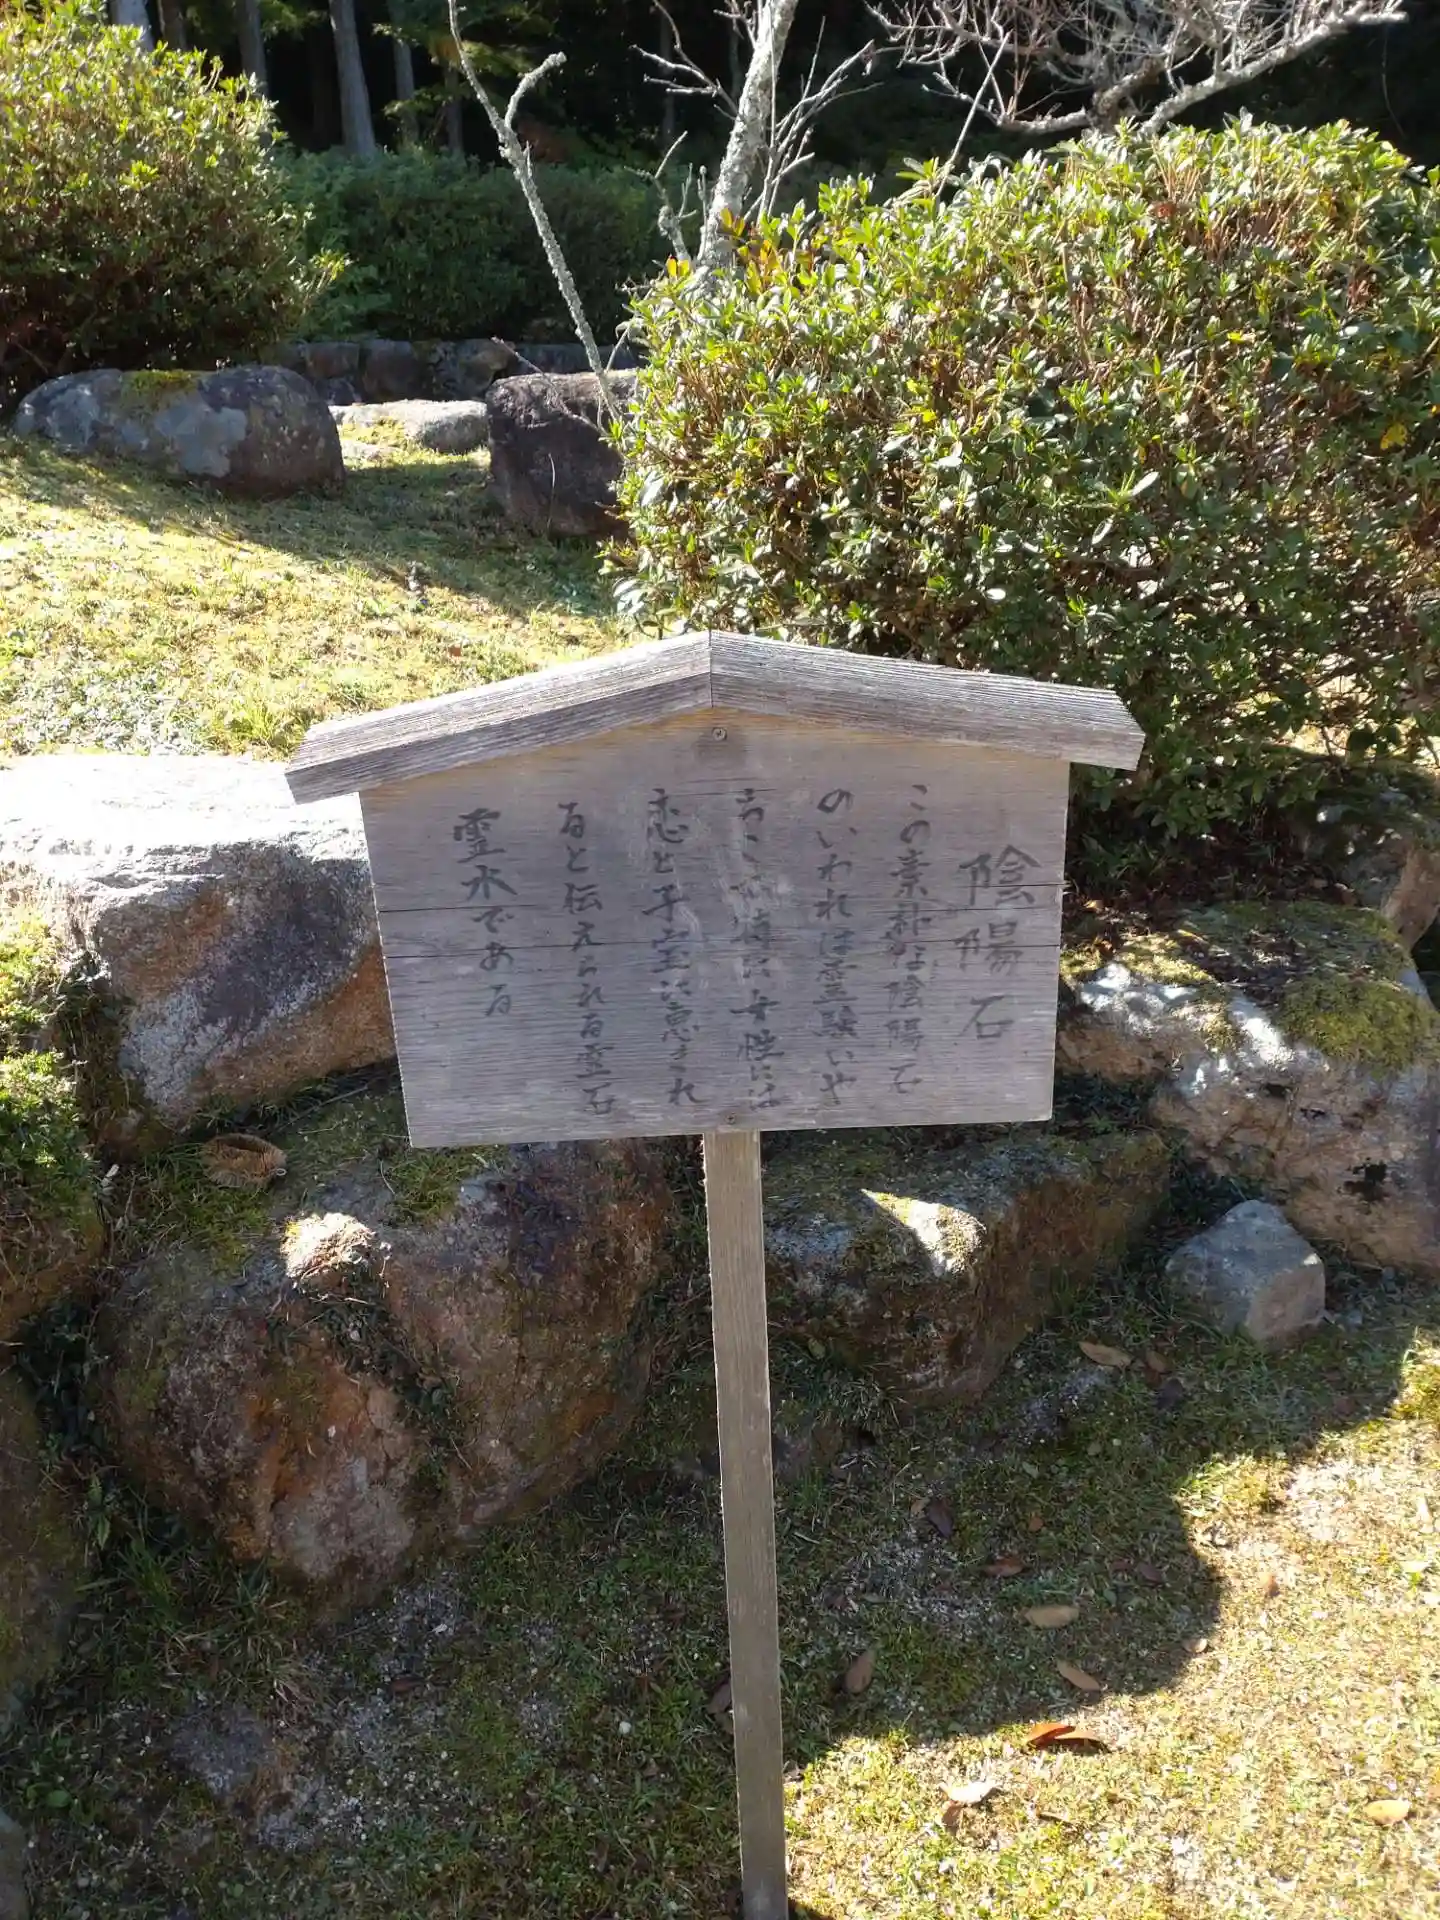 陰陽石
この素朴な陰陽石
のいわれは霊験いや
女性には
恋と子宝に恵まれ
ると伝えられる霊石
霊水である